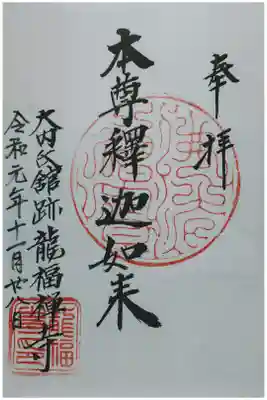 奉拝
本尊釋迦如来
大内氏館跡龍福禅寺
令和元年十一月廿八日